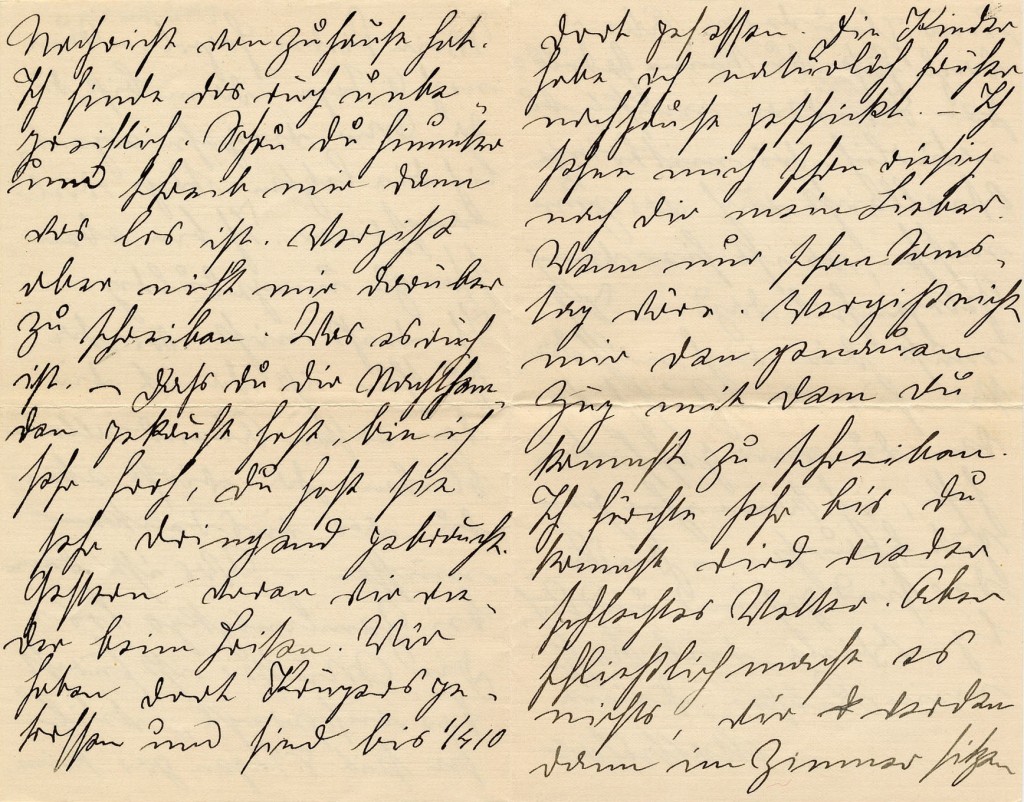 Nachricht von zuhause hat.
Ich finde das auch unbe-
greiflich. Schau du hinunter
und schreib mir dann
was los ist. Vergiß
aber nicht mir darüber
zu schreiben. Was es auch
ist. – Dass du die Nachthem-
den gekauft hast, bin ich
sehr froh, du hast sie
sehr dringend gebraucht.
Gestern waren wir wie-
der beim Heißen. Wir
haben dort Krügers ge-
troffen und sind bis 1/2 10
dort gesessen. Die Kinder
habe ich natürlich früher
nachhause geschickt. – Ich
sehne mich schon riesig
nach dir mein Lieber.
Wenn nur schon Sams-
tag wäre. Vergiß nicht
mir den genauen
Zug mit dem du
kommst zu schreiben.
Ich fürchte sehr bis du
kommst wird wieder
schlechtes Wetter. Aber
schließlich macht es
nichts, wir werden
dann im Zimmer sitzen